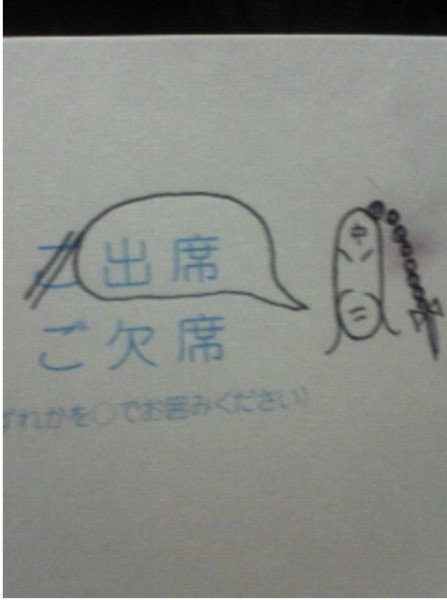 ご出席
中
ご欠席
ずれかを○でお囲みください)